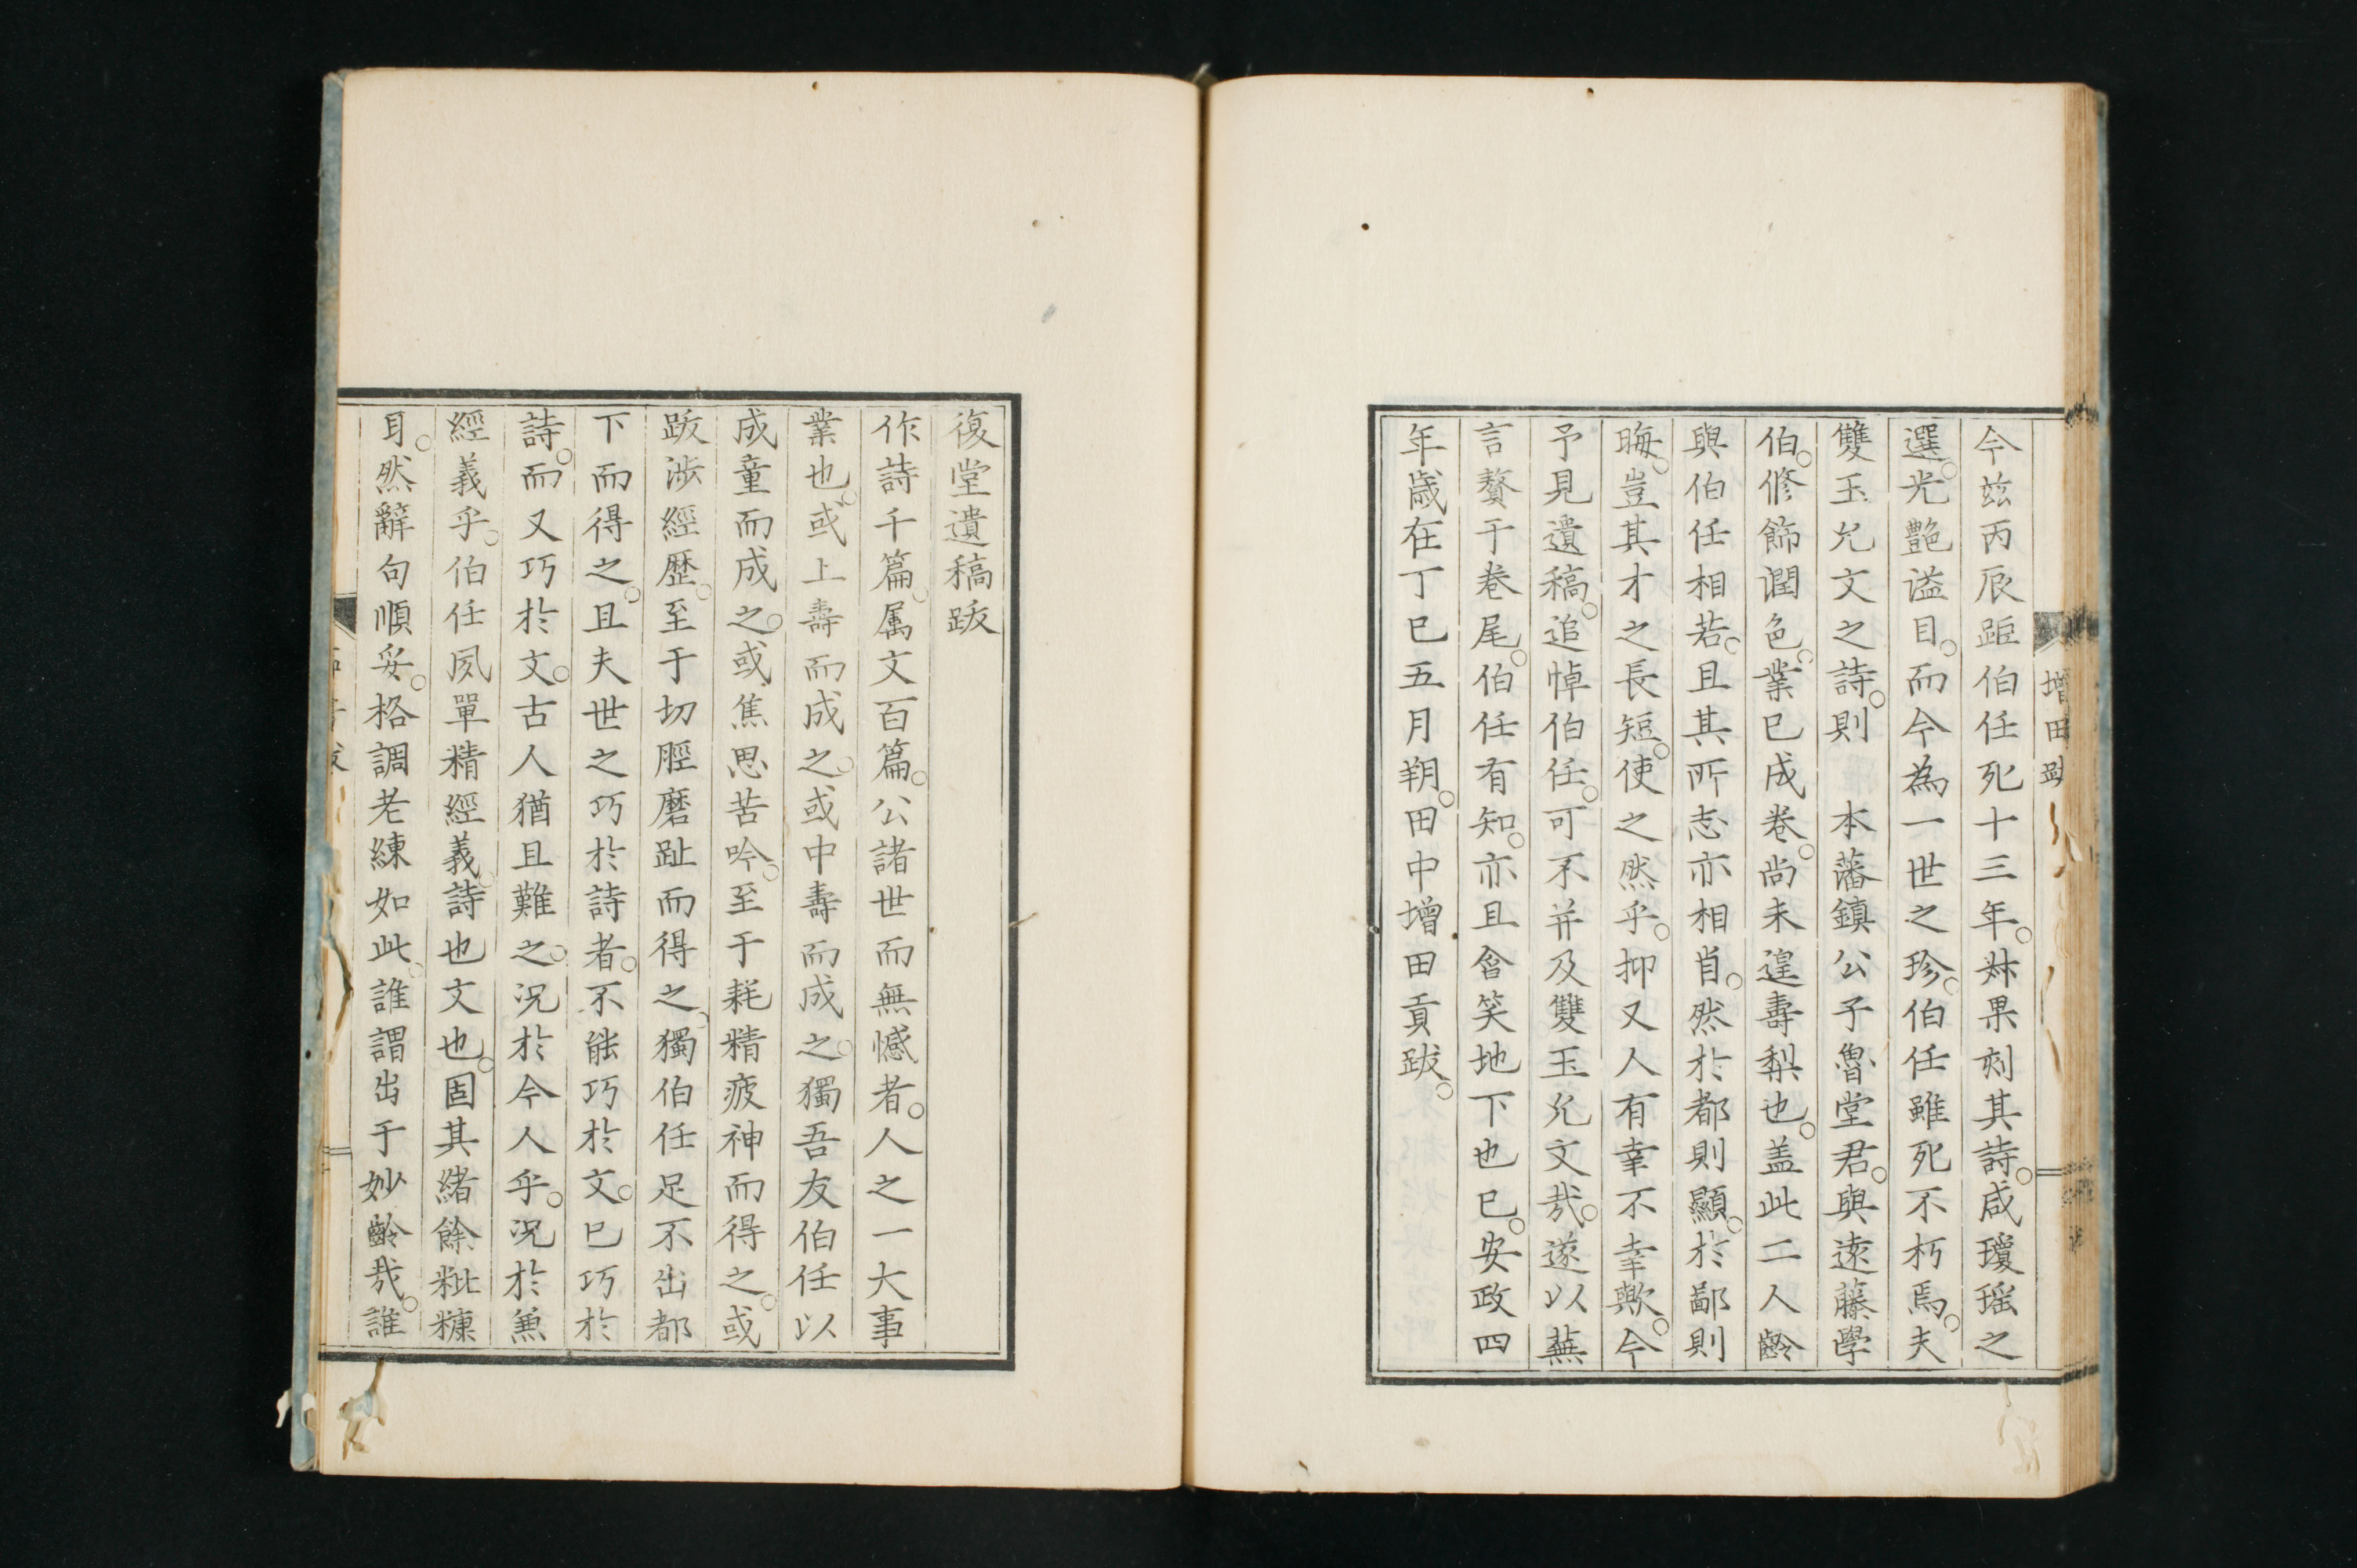 今玆丙辰距伯任死十三年。叔果刻其詩。咸瓊瑶之
選。光艷溢目。而今為一世之珍。伯任雖死不朽焉。夫
雙玉允文之詩。則　本藩鎮公子魯堂君。與遠藤學
伯。修飾潤色。業已成卷。尚未遑壽梨也。盖此二人齡
與伯任相若。且其所志亦相肖。然於都則顯。於鄙則
晦。豈其才之長短。使之然乎。抑又人有幸不幸歟。今
予見遺稿。追悼伯任。可不并及雙玉允文哉。遂以蕪
言贅于卷尾。伯任有知。亦且含笑地下也已。安政四
年歳在丁巳五月朔。田中增田貢跋。
增田跋
復堂遺稿跋
作詩千篇。属文百篇。公諸世而無憾者。人之一大事
業也。或上壽而成之。或中壽而成之。獨吾友伯任以
成童而成之。或焦思苦吟。至于耗精疲神而得之。或
跋涉經歷。至于切脛磨趾而得之。獨伯任足不出都
下而得之。且夫世之巧於詩者。不能巧於文。已巧於
詩。而又巧於文。古人猶且難之。况於今人乎。况於兼
經義乎。伯任夙單精經義。詩也文也。固其緒餘粃糠
耳。然辭句順妥。格調老練如此。誰謂出于妙齡哉。誰